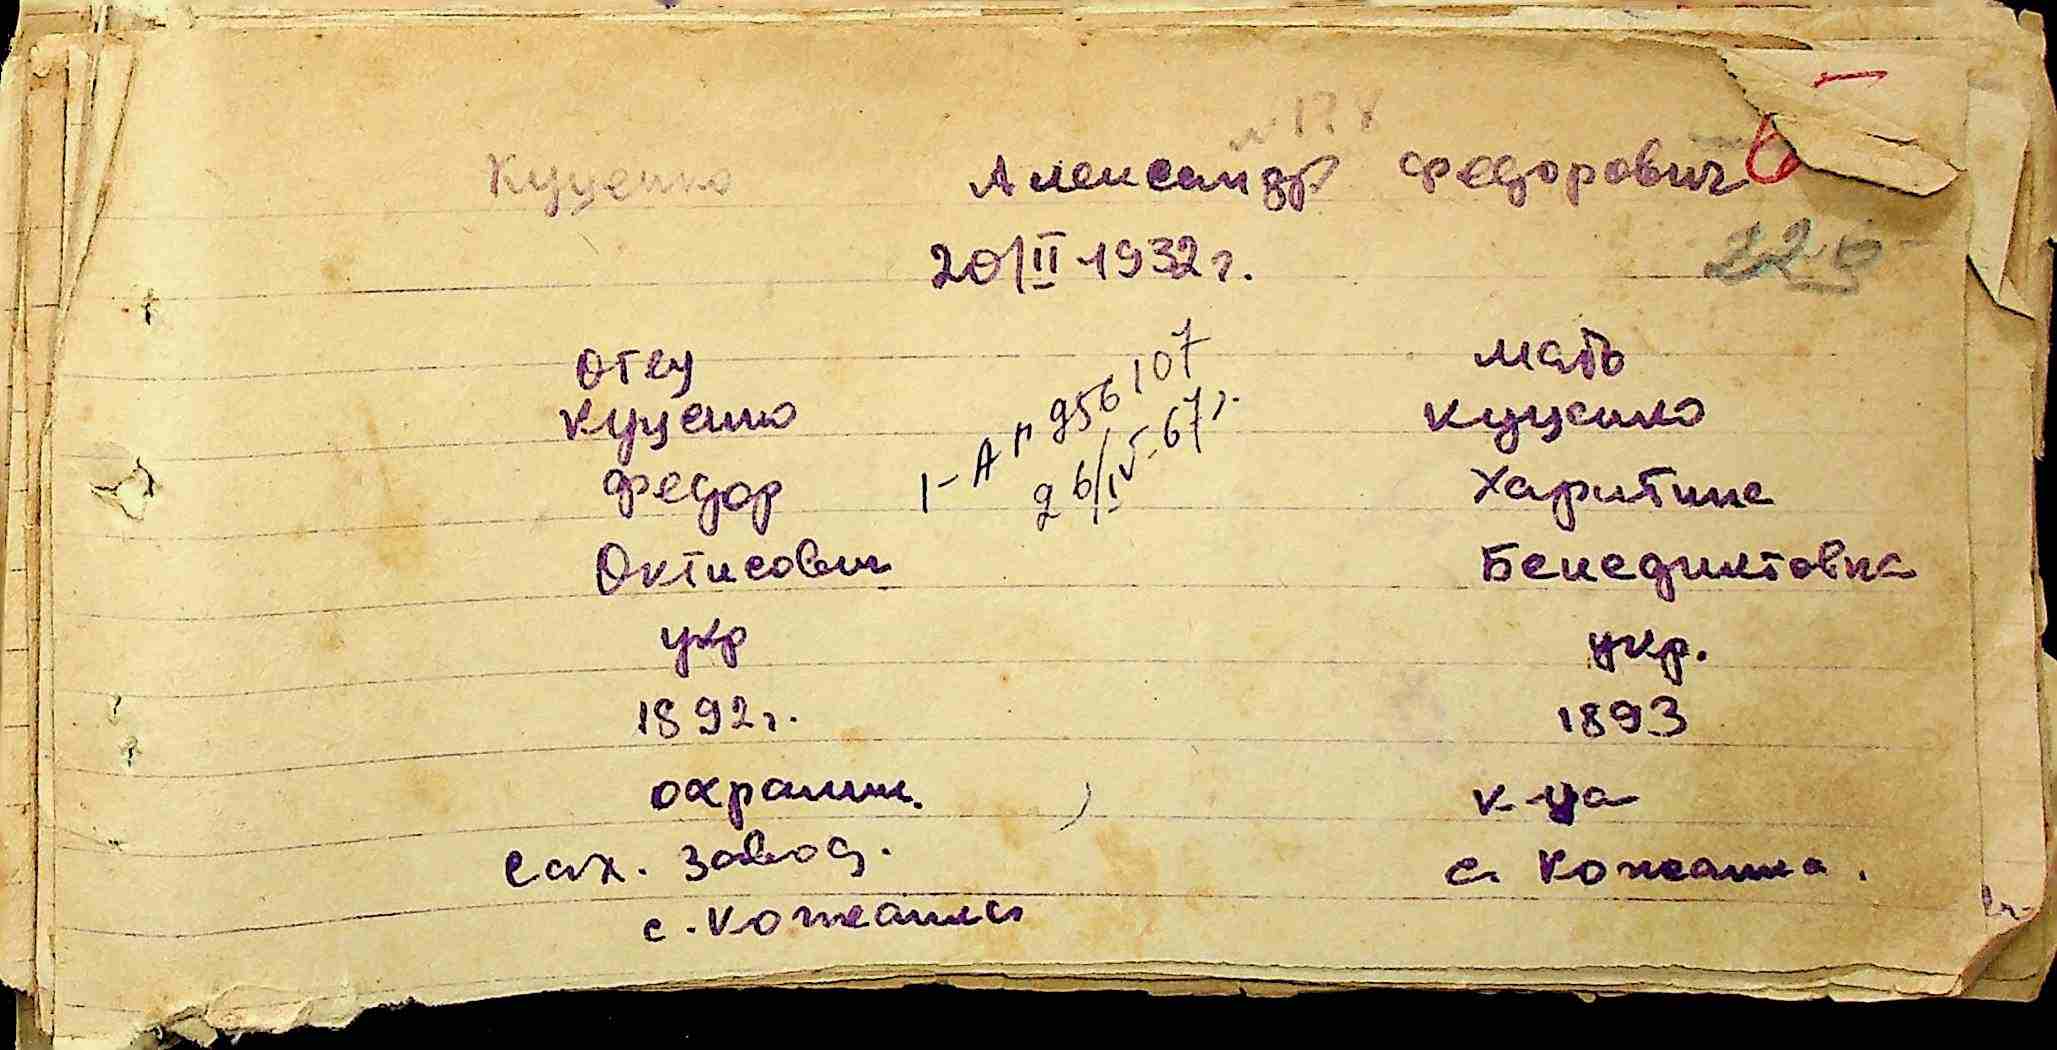 № 178
Куценко Александр Федорович 6
20/II-1932г.
22
отец
Куценко
Федор
Октисович
укр
1892г.
охранник.
Сах. завод.
с. Кожанка
1-АП 956107
26/IV-67г.
мать
Куценко
Харитина
Бенедиктовна
укр.
1893
к-ца
с. Кожанка.